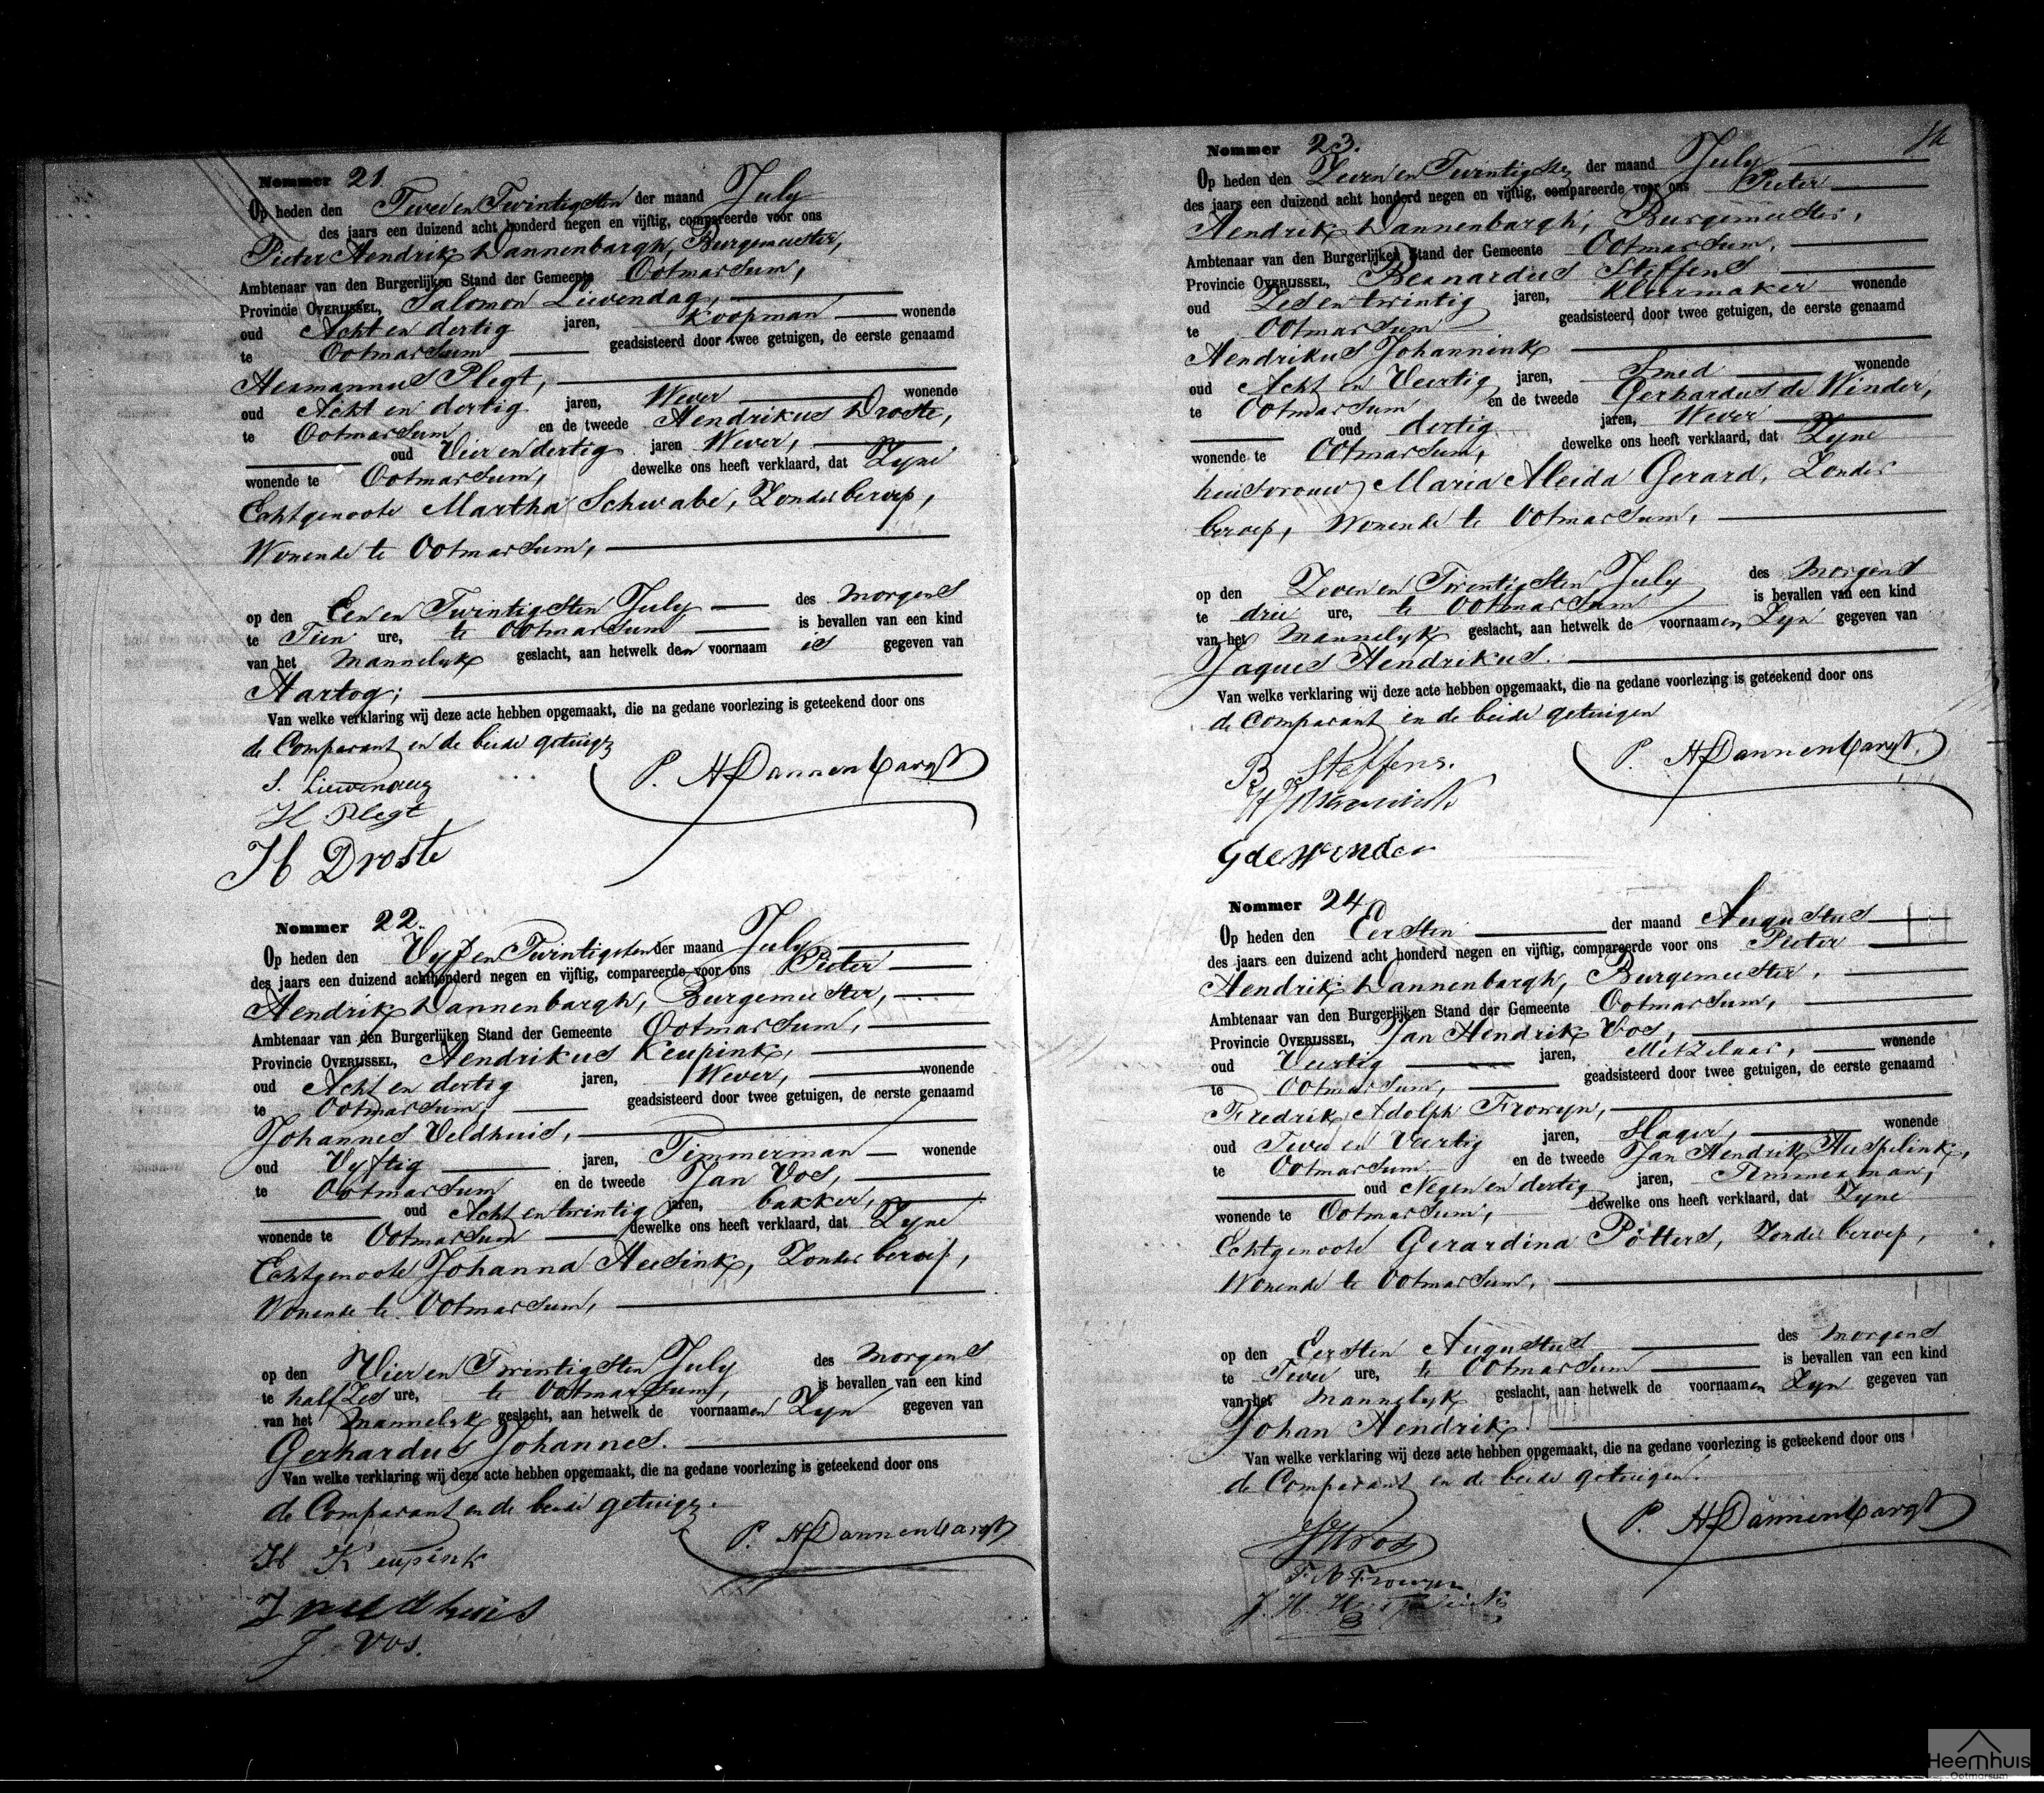 Nommer 21.
Op heden den Twee en Twintigsten der maand July
des jaars een duizend acht honderd negen en vijftig, compareerde voor ons
Pieter Hendrik Dannenbargh, Burgemeester,
Ambtenaar van den Burgerlijken Stand der Gemeente Ootmarsum,
Provincie OVERIJSSEL, Salomon Liewendag,
oud Acht en dertig jaren, Koopman wonende
te Ootmarsum geadsisteerd door twee getuigen, de eerste genaamd
Hermannus Plegt,
oud Acht en dertig jaren, Wever wonende
te Ootmarsum en de tweede Hendrikus Droste,
oud Vier en dertig jaren Wever,
wonende te Ootmarsum, dewelke ons heeft verklaard, dat Zyne
Echtgenoote Martha Schwabe, Zonder beroep,
Wonende te Ootmarsum,
op den Een en Twintigsten July des morgens
te Tien ure, te Ootmarsum is bevallen van een kind
van het Mannelyk geslacht, aan hetwelk den voornaam is gegeven van
Hartog;
Van welke verklaring wij deze acte hebben opgemaakt, die na gedane voorlezing is geteekend door ons
de Comparant en de beide getuigen
S. Liewendag P. H Dannenbargh
H Plegt
H Droste
Nommer 22.
Op heden den Vyf en Twintigsten der maand July
des jaars een duizend achthonderd negen en vijftig, compareerde voor ons Pieter
Hendrik Dannenbargh, Burgemeester,
Ambtenaar van den Burgerlijken Stand der Gemeente Ootmarsum,
Provincie OVERIJSSEL, Hendrikus Keupink,
oud Acht en dertig jaren, Wever, wonende
te Ootmarsum, geadsisteerd door twee getuigen, de eerste genaamd
Johannes Veldhuis,
oud Vyftig jaren, Timmerman wonende
te Ootmarsum en de tweede Jan Vos,
oud Acht en twintig jaren, bakker,
wonende te Ootmarsum dewelke ons heeft verklaard, dat Zyne
Echtgenoote Johanna Heesink, Zonder beroep,
Wonende te Ootmarsum,
op den Vier en Twintigsten July des morgens
te half Zes ure, te Ootmarsum, is bevallen van een kind
van het mannelyk geslacht, aan hetwelk de voornaamen Zyn gegeven van
Gerhardus Johannes.
Van welke verklaring wij deze acte hebben opgemaakt, die na gedane voorlezing is geteekend door ons
de Comparant en de beide getuigen.
H Keupink P. H Dannenbargh
J Veldhuis
J Vos.
Nommer 23.
Op heden den Zeven en Twintigsten der maand July
des jaars een duizend acht honderd negen en vijftig, compareerde voor ons Pieter
Hendrik Dannenbargh, Burgemeester,
Ambtenaar van den Burgerlijken Stand der Gemeente Ootmarsum,
Provincie OVERIJSSEL, Bernardus Steffens
oud Zes en twintig jaren, Kleermaker wonende
te Ootmarsum geadsisteerd door twee getuigen, de eerste genaamd
Hendrikus Johannink
oud Acht en Veertig jaren, Smed wonende
te Ootmarsum en de tweede Gerhardus de Winder,
oud dertig jaren, Wever
wonende te Ootmarsum, dewelke ons heeft verklaard, dat Zyne
huisvrouw Maria Aleida Gerard, Zonder
beroep, Wonende te Ootmarsum,
op den Zeven en Twintigsten July des morgens
te drie ure, te Ootmarsum is bevallen van een kind
van het Mannelyk geslacht, aan hetwelk de voornaamen Zyn gegeven van
Jaques Hendrikus.
Van welke verklaring wij deze acte hebben opgemaakt, die na gedane voorlezing is geteekend door ons
de Comparant en de beide getuigen
B Steffens. P. H Dannenbargh
G de Winder
Nommer 24
Op heden den Eersten der maand Augustus
des jaars een duizend acht honderd negen en vijftig, compareerde voor ons Pieter
Hendrik Dannenbargh, Burgemeester,
Ambtenaar van den Burgerlijken Stand der Gemeente Ootmarsum,
Provincie OVERIJSSEL, Jan Hendrik Vos,
oud Veertig jaren, Metzelaar, wonende
te Ootmarsum, geadsisteerd door twee getuigen, de eerste genaamd
Fredrik Adolph Frowyn,
oud Twee en Veertig jaren, Slager, wonende
te Ootmarsum en de tweede Jan Hendrik Heispelink,
oud Negen en dertig jaren, Timmerman,
wonende te Ootmarsum, dewelke ons heeft verklaard, dat Zyne
Echtgenoote Gerardina Pötters, Zonder beroep,
Wonende te Ootmarsum,
op den Eersten Augustus des morgens
te Twee ure, te Ootmarsum is bevallen van een kind
van het mannelyk geslacht, aan hetwelk de voornaamen Zyn gegeven van
Johan Hendrik.
Van welke verklaring wij deze acte hebben opgemaakt, die na gedane voorlezing is geteekend door ons
de Comparant en de beide getuigen.
JHVos P. H Dannenbargh
F A Frowyn
Heemhuis
Ootmarsum